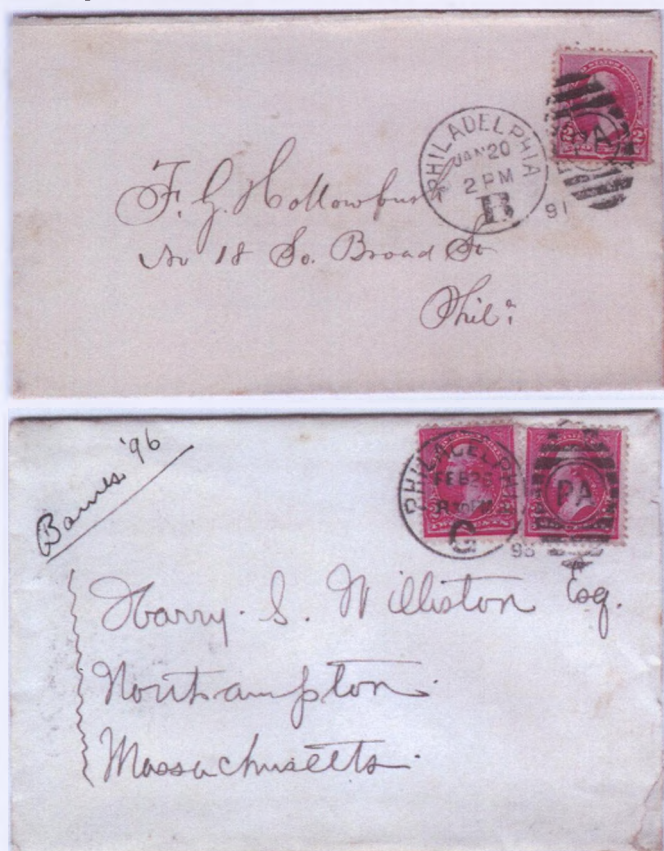 PHILADELPHIA
JAN 20
2 PM
B
91
PA
2 2
F. G.
No 18 So. Broad St
Phila
Barnes '96
PHILADELPHIA
FEB
G
96
PA
Harry. S. Williston Esq.
Northampton.
Massachusetts.